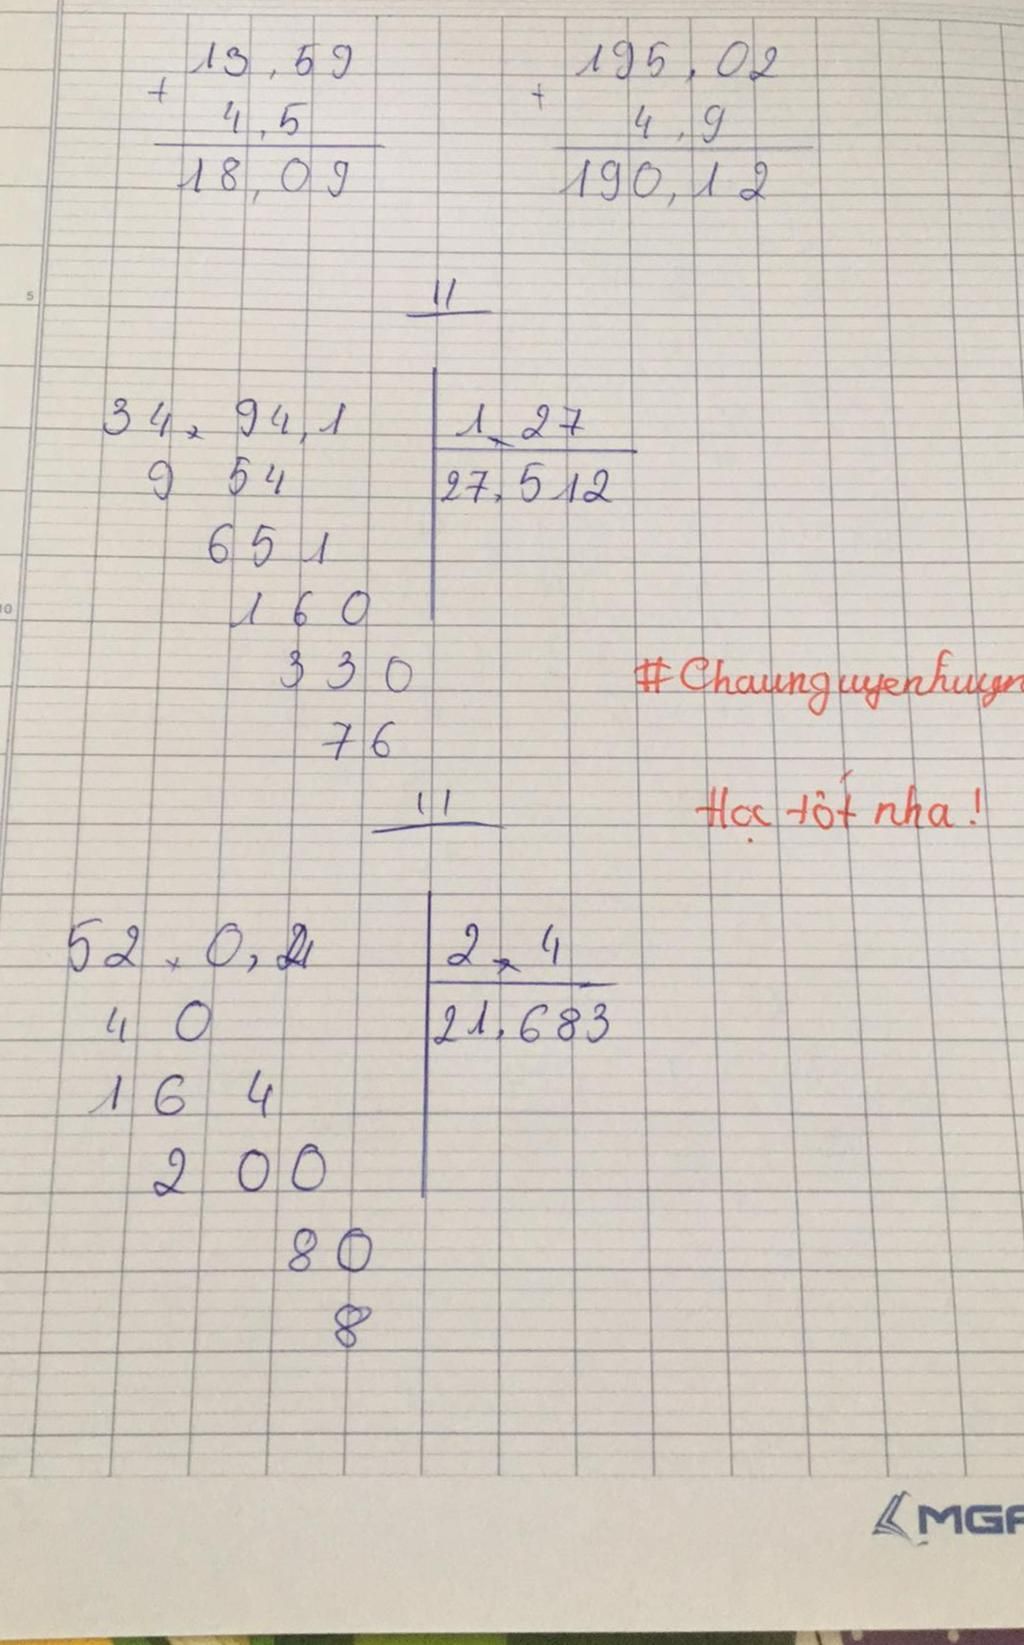 13,59
+
4,5
18,09
195,02
+
4,9
190,12
5
11
34, 94,1
1,27
9 54
27,512
651
160
10
330
#Chaunguyenhuyn
76
Học tốt nha!
11
52,0,2
2,4
40
21,683
164
200
80
8
MGA